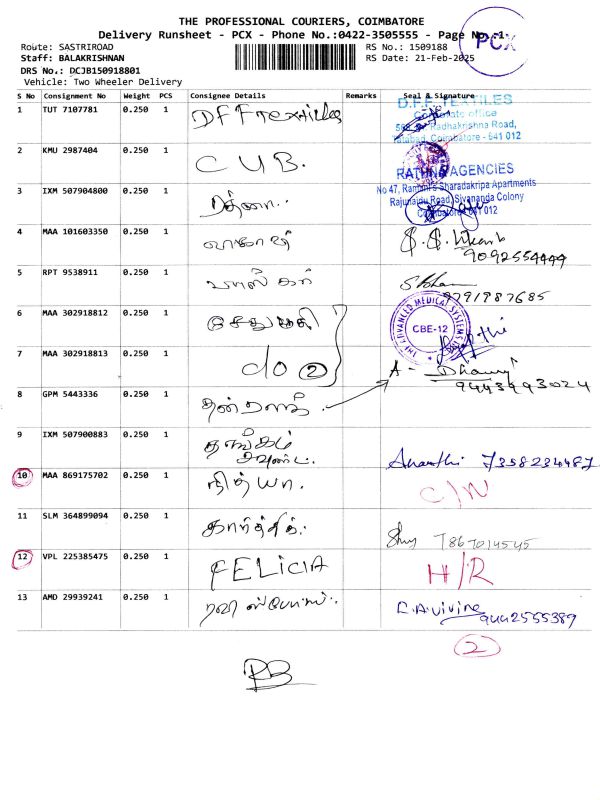 THE PROFESSIONAL COURIERS, COIMBATORE
Delivery Runsheet - PCX - Phone No.:0422-3505555 - Page No.:1
PCX
Route: SASTRIROAD
RS No.: 1509188
Staff: BALAKRISHNAN
RS Date: 21-Feb-2025
DRS No.: DCJB150918801
Vehicle: Two Wheeler Delivery
S No Consignment No Weight PCS Consignee Details Remarks Seal & Signature
1 TUT 7107781 0.250 1 DFF Textiles
D.F.F. TEXTILES
Corporate office
Radhakrishna Road,
Tatabad, Coimbatore - 641 012
2 KMU 2987404 0.250 1 C U B.
RATHNA AGENCIES
No 47, Raman's Sharadakripa Apartments
Rajunaidu Road, Sivananda Colony
Coimbatore 641 012
3 IXM 507904800 0.250 1 ரத்னா..
4 MAA 101603350 0.250 1
9092554444
5 RPT 9538911 0.250 1
9791987685
6 MAA 302918812 0.250 1
THE ADVANCED MEDICAL SYSTEMS
CBE-12
7 MAA 302918813 0.250 1 do 2
A - Dhanuj
9443993024
8 GPM 5443336 0.250 1
9 IXM 507900883 0.250 1 தங்கம்
Ananthi 7358234487
10 MAA 869175702 0.250 1 நித்யா.
C/N
11 SLM 364899094 0.250 1 கார்த்திக்.
7867014545
12 VPL 225385475 0.250 1 FELICIA
H/R
13 AMD 29939241 0.250 1 ரவி
9442555389
2
RB